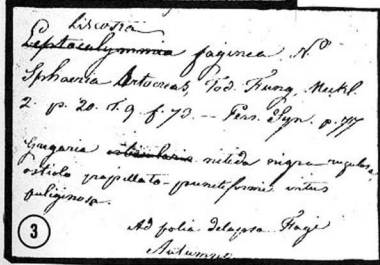 Liscostra
Leptocalymma faginea, N°
Sphaeria Artocreas, Tod. Fung. Mekl.
2. p. 20. T. 9. f. 73. -- Pers. Syn. p. 77
Gregaria orbicularis nitida nigra rugulosa,
ostiolo papillato-punctiformi intus
fuliginosa.
Ad folia dejapsa Fagi
Autumno
3